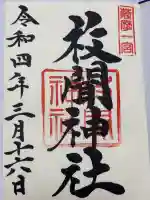 薩摩一宮
枚聞神社
令和四年三月十六日